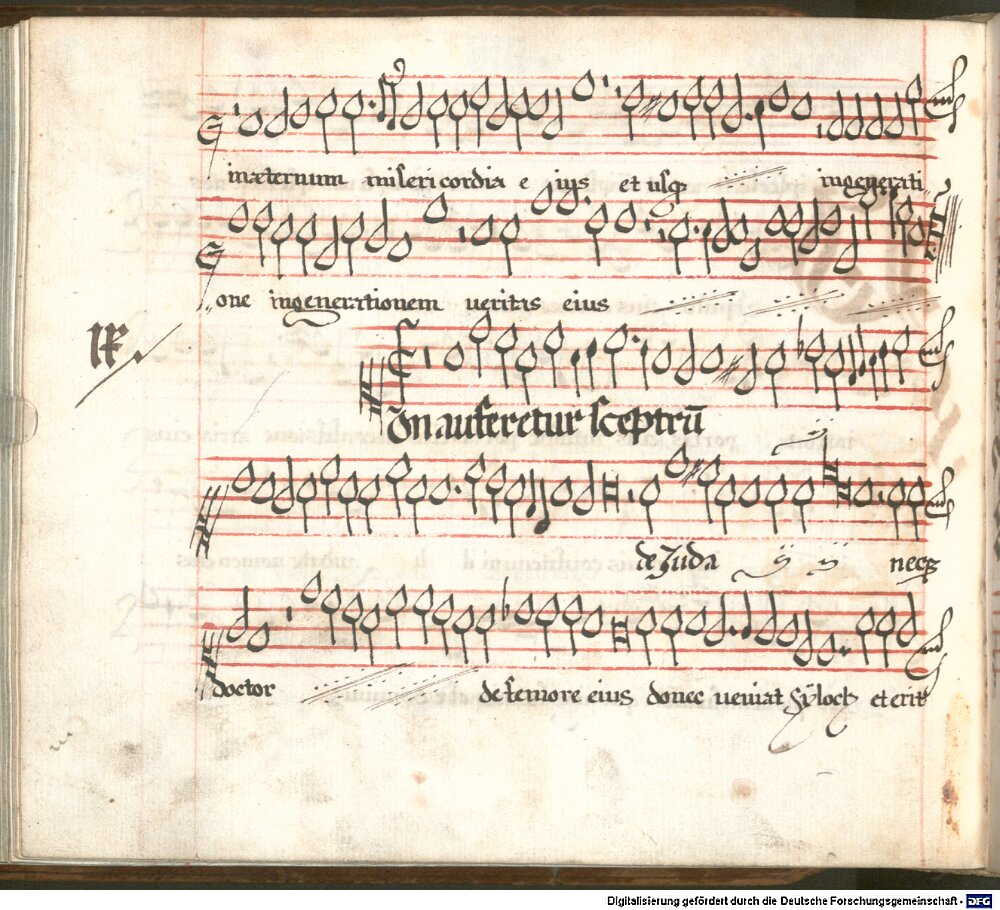 inæternum misericordia e ius et usq; ingenerati
one ingenerationem ueritas eius
IX.
Non auferetur sceptrū
de Juda ij ij necq;
doctor de femore eius donec ueniat Sÿloch et erit
Digitalisierung gefördert durch die Deutsche Forschungsgemeinschaft - DFG